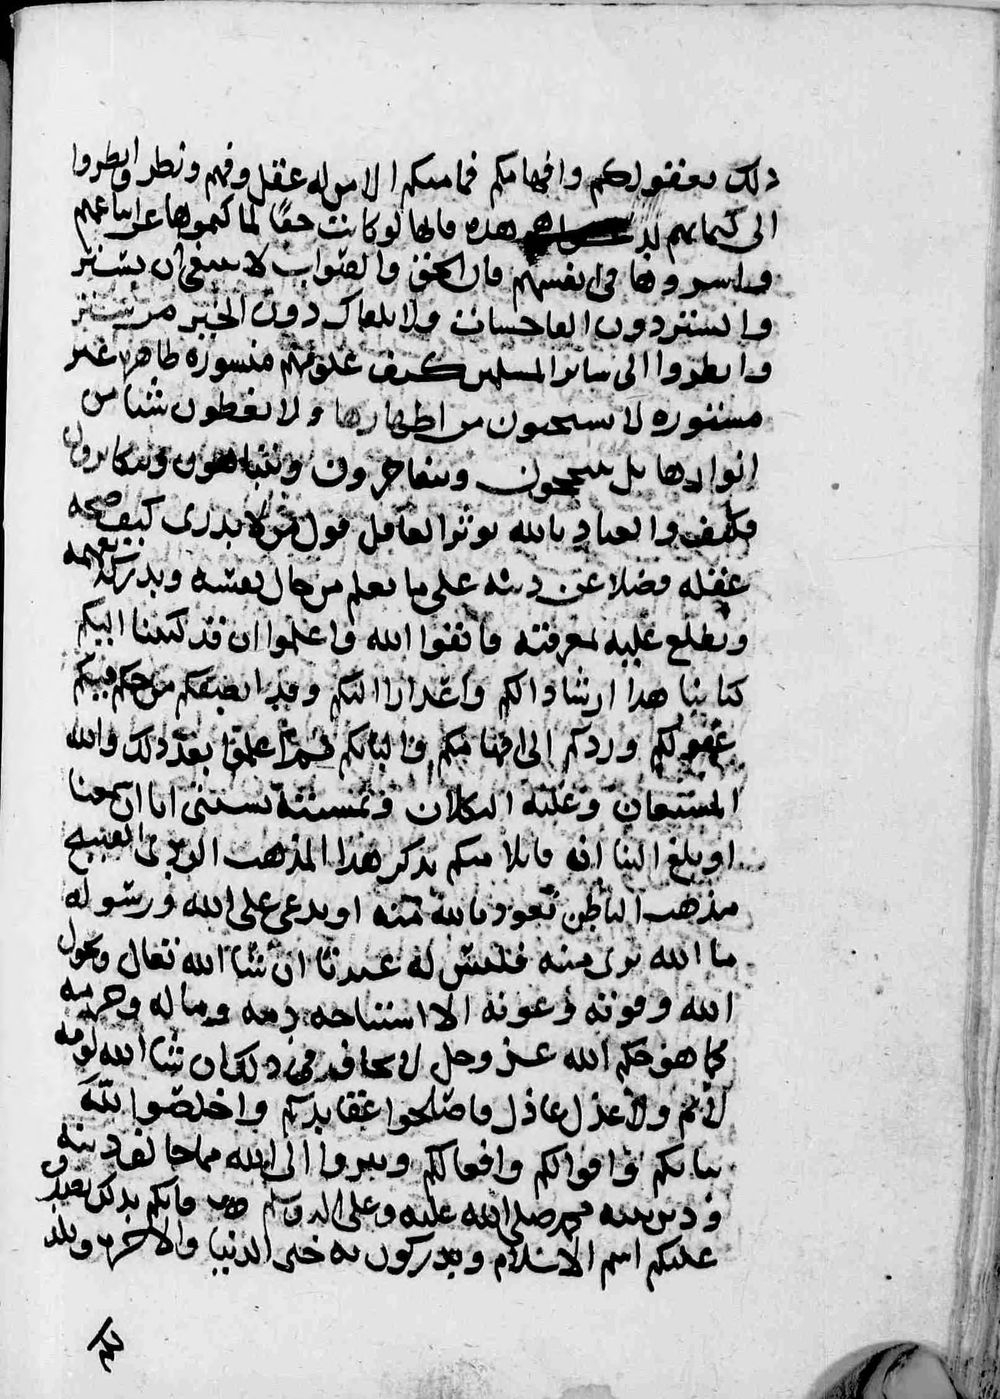 ذلك بعقولكم وافهامكم فما منكم الا من له عقل وفهم ونظر وانظروا
الى كتمانهم لمذهبهم هذه فانها لو كانت حقا لما كتموها عن اتباعهم
واسروها في انفسهم فان الحق والصواب لا ينبغي ان يستتر
والستر دون الفاحسات ولا يلقاك دون الخير من ستر
وانظروا الى سائر المسلمين كيف علومهم منشورة ظاهرة غير
مستورة لا يستحيون من اظهارها ولا يغطون شيا من
انوارها بل يبتجحون ويتفاخرون ويتباهون ويتكاثرون
فكيف والعياذ بالله يوثر العاقل قول من لا يدرى كيف صحة
عقله فضلا عن دينه على ما يعلم من حال نفسه ويدركه بفهمه
ويطلع عليه لمعرفته فاتقوا الله واعلموا ان قد كتبنا اليكم
كتابنا هذا ارشادا لكم واعذارا اليكم وقد انصفكم من حكم فيكم
عقولكم وردكم الى افهامكم والبابكم ثم اعلموا بعد ذلك والله
المستعان وعليه التكلان وبمشيئته نستثني انا ان سمعنا
او بلغ الينا ان قايلا منكم يذكر هذا المذهب الردى القبيح
مذهب الباطن نعوذ بالله منه او يدعي على الله ورسوله
ما الله برى منه فليس له عندنا ان شا الله تعالى وبحول
الله وقوته وعونه الا استباحة دمه وماله وحرمه
كما هو حكم الله عز وجل لا نخاف في ذلك ان شا الله لومة
لائم ولا عذل عاذل فاصلحوا عقايدكم واخلصوا لله
نياتكم واقوالكم وافعالكم وتبروا الى الله مما خالف دينه
ودين نبيه محمد صلى الله عليه وعلى اله وسلم فانكم بذلك يصير
عليكم اسم الاسلام وتدركون به خير الدنيا والاخرة ويلذ
لكم